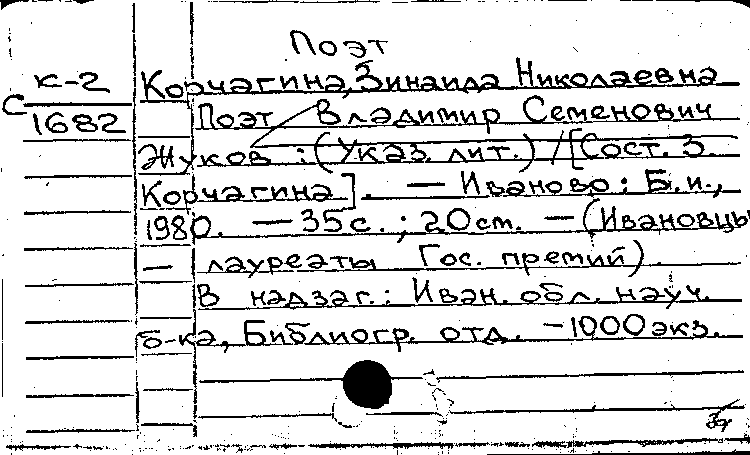 Поэт
к-2
С 1682
Корчагина, Зинаида Николаевна
Поэт Владимир Семенович
Жуков : (Указ. лит.) / [Сост. З.
Корчагина]. — Иваново : Б.и.,
1980. — 35 с. ; 20 см. — (Ивановцы
— лауреаты Гос. премий).
В надзаг.: Иван. обл. науч.
б-ка, Библиогр. отд. - 1000 экз.